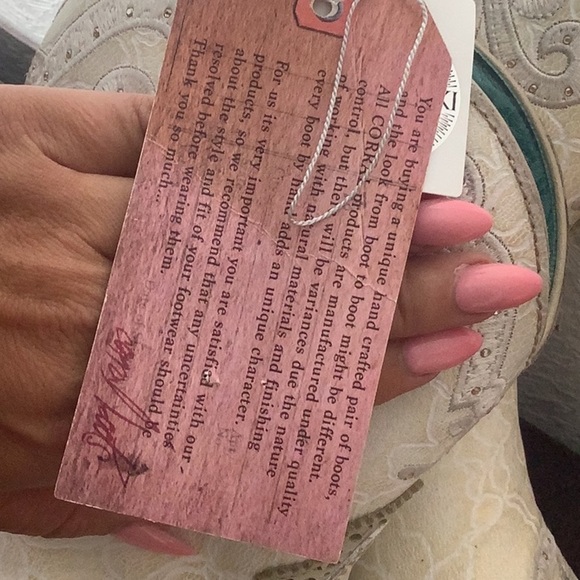 You are buying a unique hand crafted pair of boots,
and the look from boot to boot might be different.
All CORRAL products are manufactured under quality
control, but there will be variances due the nature
of working with natural materials and finishing
every boot by hand adds an unique character.
For us its very important you are satisfied with our
products, so we recommend that any uncertainties
about the style and fit of your footwear should be
resolved before wearing them.
Thank you so much...